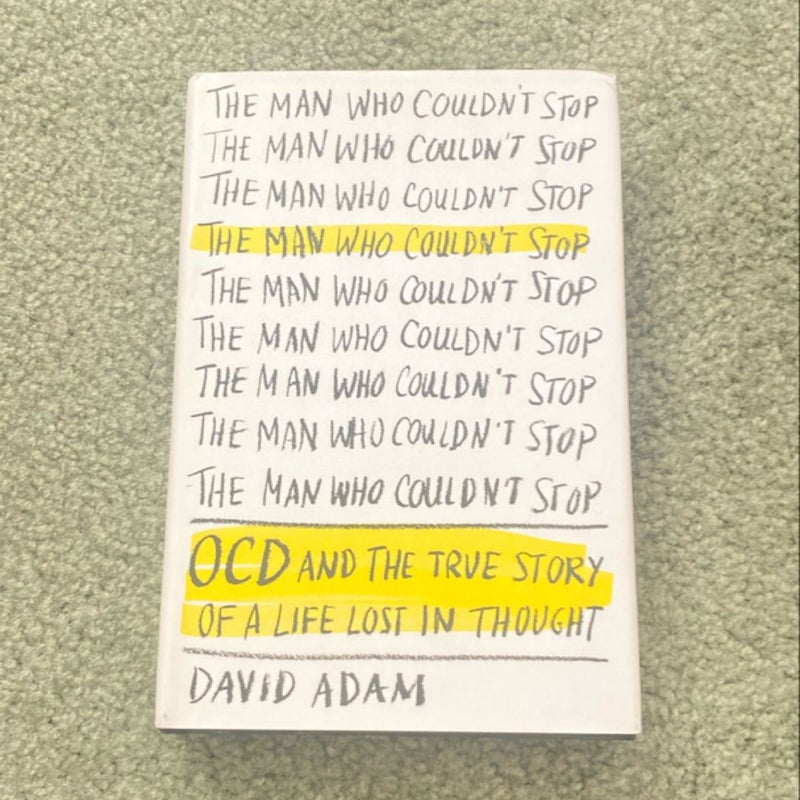 THE MAN WHO COULDN'T STOP
THE MAN WHO COULDN'T STOP
THE MAN WHO COULDN'T STOP
THE MAN WHO COULDN'T STOP
THE MAN WHO COULDN'T STOP
THE MAN WHO COULDN'T STOP
THE MAN WHO COULDN'T STOP
THE MAN WHO COULDN'T STOP
THE MAN WHO COULDN'T STOP
OCD AND THE TRUE STORY
OF A LIFE LOST IN THOUGHT
DAVID ADAM